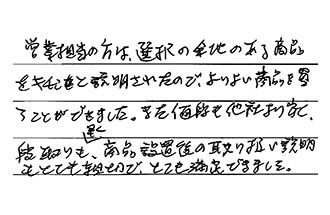 営業担当の方は、選択の余地のある商品
をきちんと説明されたので、よりよい商品を買
うことができました。また価格も他社より安く、
段取りも良く、商品設置後の取り扱い説明
もとても親切で、とても満足できました。